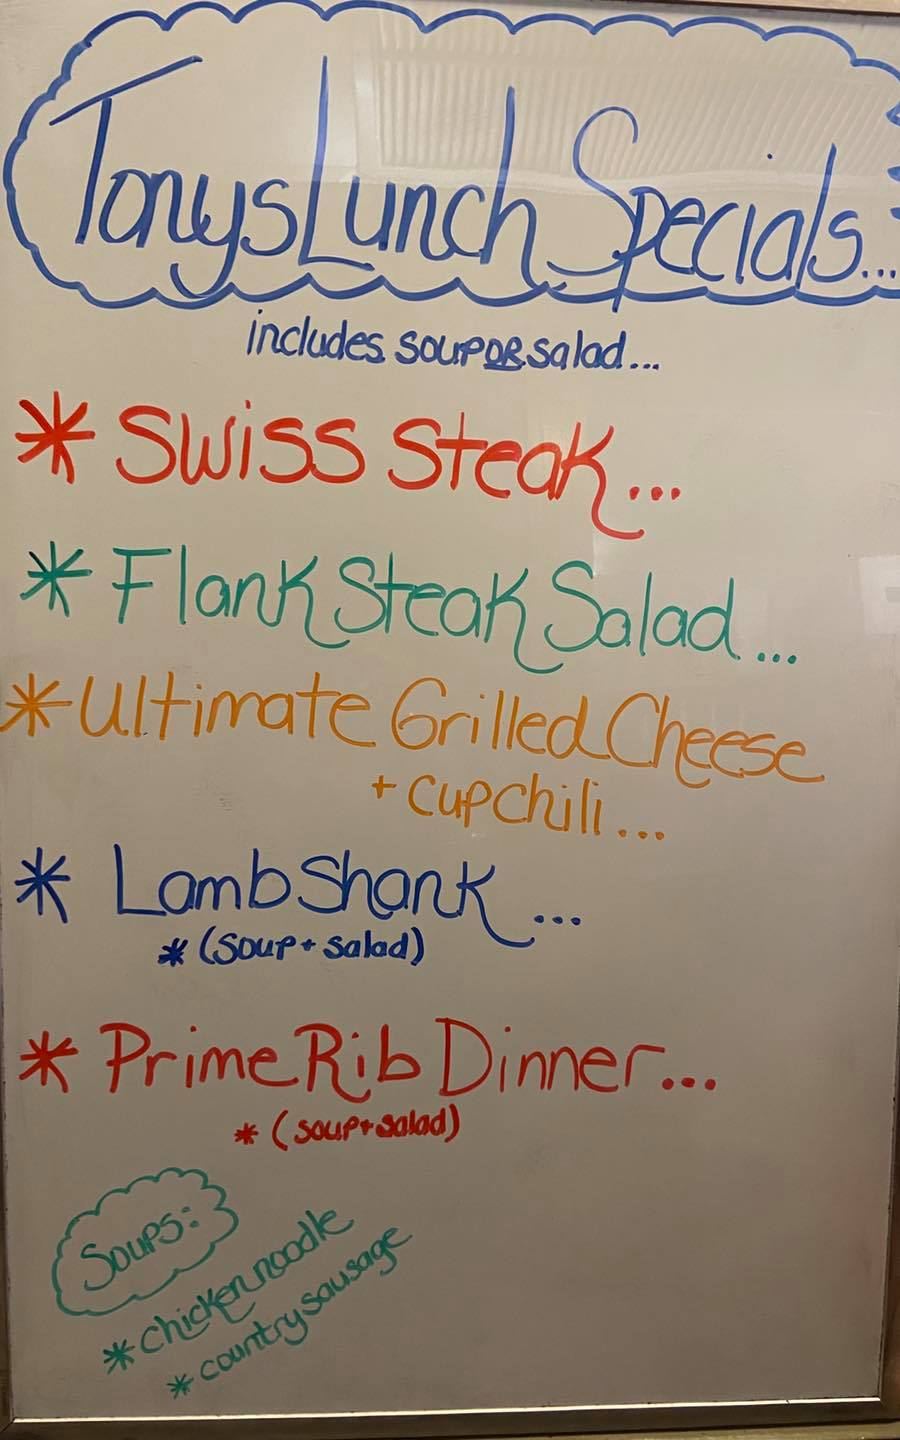 Tonys Lunch Specials...
includes soup OR salad...
* Swiss Steak...
* Flank Steak Salad...
* Ultimate Grilled Cheese
+ cup chili...
* Lamb Shank...
* (soup + salad)
* Prime Rib Dinner...
* (soup + salad)
Soups:
* chicken noodle
* country sausage